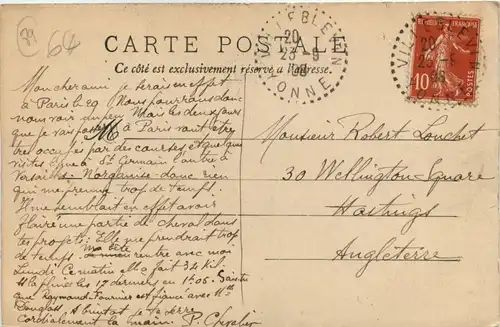 64
CARTE POSTALE
Ce côté est exclusivement réservé à l'adresse.
VILLEBLEVIN
20
23-9
08
YONNE
REPUBLIQUE FRANÇAISE
10
VILLEBLEVIN
20
23-9
08
Mon cher ami je serais en effet
à Paris le 29 Nous pourrons donc
nous voir un peu Mais les deux jours
que je vais passer à Paris vont être
très occupés par des courses et quelques
visites l'une à St Germain l'autre à
Versailles. N'organise donc rien
qui me prenne trop de temps.
Il me semblait en effet avoir
flairé une partie de cheval dans
tes projets: Elle que prendrait trop
de temps. Ma bête rentre avec moi
Lundi Ce matin elle a fait 32 Kil
les 17 derniers en 1h05. Sais tu
que Raymond Fournier est fiancé avec Mlle
Douglass
cordialement la main P. Chevalier
Monsieur Robert Louchet
30 Wellington-Square
Hastings
Angleterre